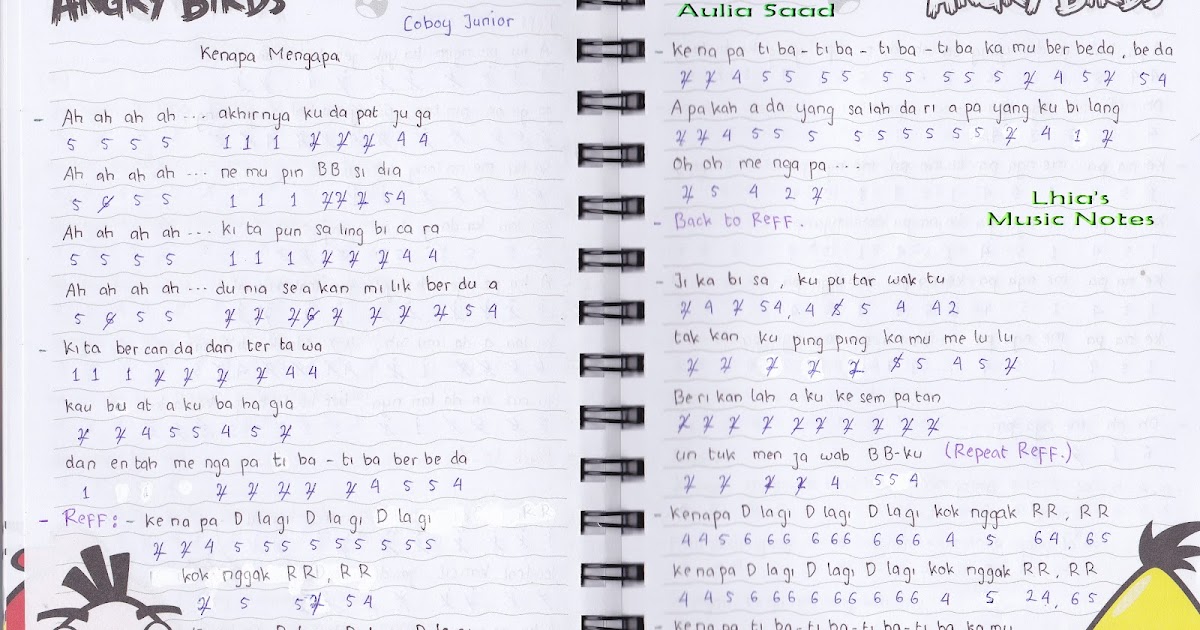 ANGRY BIRDS
Coboy Junior
Kenapa Mengapa
- Ah ah ah ah ... akhirnya ku da pat ju ga
5 5 5 5 1 1 1 2̸ 2̸ 2̸ 4 4
Ah ah ah ah ... ne mu pin BB si dia
5 5̸ 5 5 1 1 1 2̸ 2̸ 2̸ 5 4
Ah ah ah ah ... ki ta pun sa ling bi ca ra
5 5 5 5 1 1 1 2̸ 2̸ 2̸ 4 4
Ah ah ah ah ... du nia se a kan mi lik ber du a
5 5̸ 5 5 2̸ 2̸ 2̸ 5̸ 2̸ 2̸ 2̸ 2̸ 5 4
- Kita ber can da dan ter ta wa
1 1 1 2̸ 2̸ 2̸ 2̸ 4 4
kau bu at a ku ba ha gia
2̸ 2̸ 4 5 5 4 5 2̸
dan en tah me nga pa ti ba - ti ba ber be da
1 2̸ 2̸ 2̸ 2̸ 2̸ 4 5 5 4
- Reff: - ke na pa D lagi D lagi D lagi
2̸ 2̸ 4 5 5 5 5 5 5 5 5 5
kok nggak RR, RR
2̸ 5 5 2̸ 5 4
Aulia Saad
ANGRY BIRDS
- ke na pa ti ba - ti ba - ti ba - ti ba ka mu ber be da, be da
2̸ 2̸ 4 5 5 5 5 5 5 5 5 5 2̸ 4 5 2̸ 5 4
A pa kah a da yang sa lah da ri a pa yang ku bi lang
2̸ 2̸ 4 5 5 5 5 5 5 5 5 5 2̸ 4 1 2̸
Oh oh me nga pa ...
2̸ 5 4 2 2̸
Lhia's
Music Notes
- Back to Reff.
- Ji ka bi sa, ku pu tar wak tu
2̸ 4 2̸ 5 4, 4 5̸ 5 4 4 2
tak kan ku ping ping ka mu me lu lu
2̸ 2̸ 2̸ 2̸ 2̸ 5̸ 5 4 5 2̸
Be ri kan lah a ku ke sem pa tan
2̸ 2̸ 2̸ 2̸ 2̸ 2̸ 2̸ 2̸ 2̸ 2̸
un tuk men ja wab BB-ku (Repeat Reff.)
2̸ 2̸ 2̸ 2̸ 4 5 5 4
- Kenapa D lagi D lagi D lagi kok nggak RR, RR
4 4 5 6 6 6 6 6 6 6 6 6 4 5 6 4, 6 5
Kenapa D lagi D lagi D lagi kok nggak RR, RR
4 4 5 6 6 6 6 6 6 6 6 6 4 5 2 4, 6 5
- ke na pa ti ba - ti ba - ti ba - ti ba ka mu